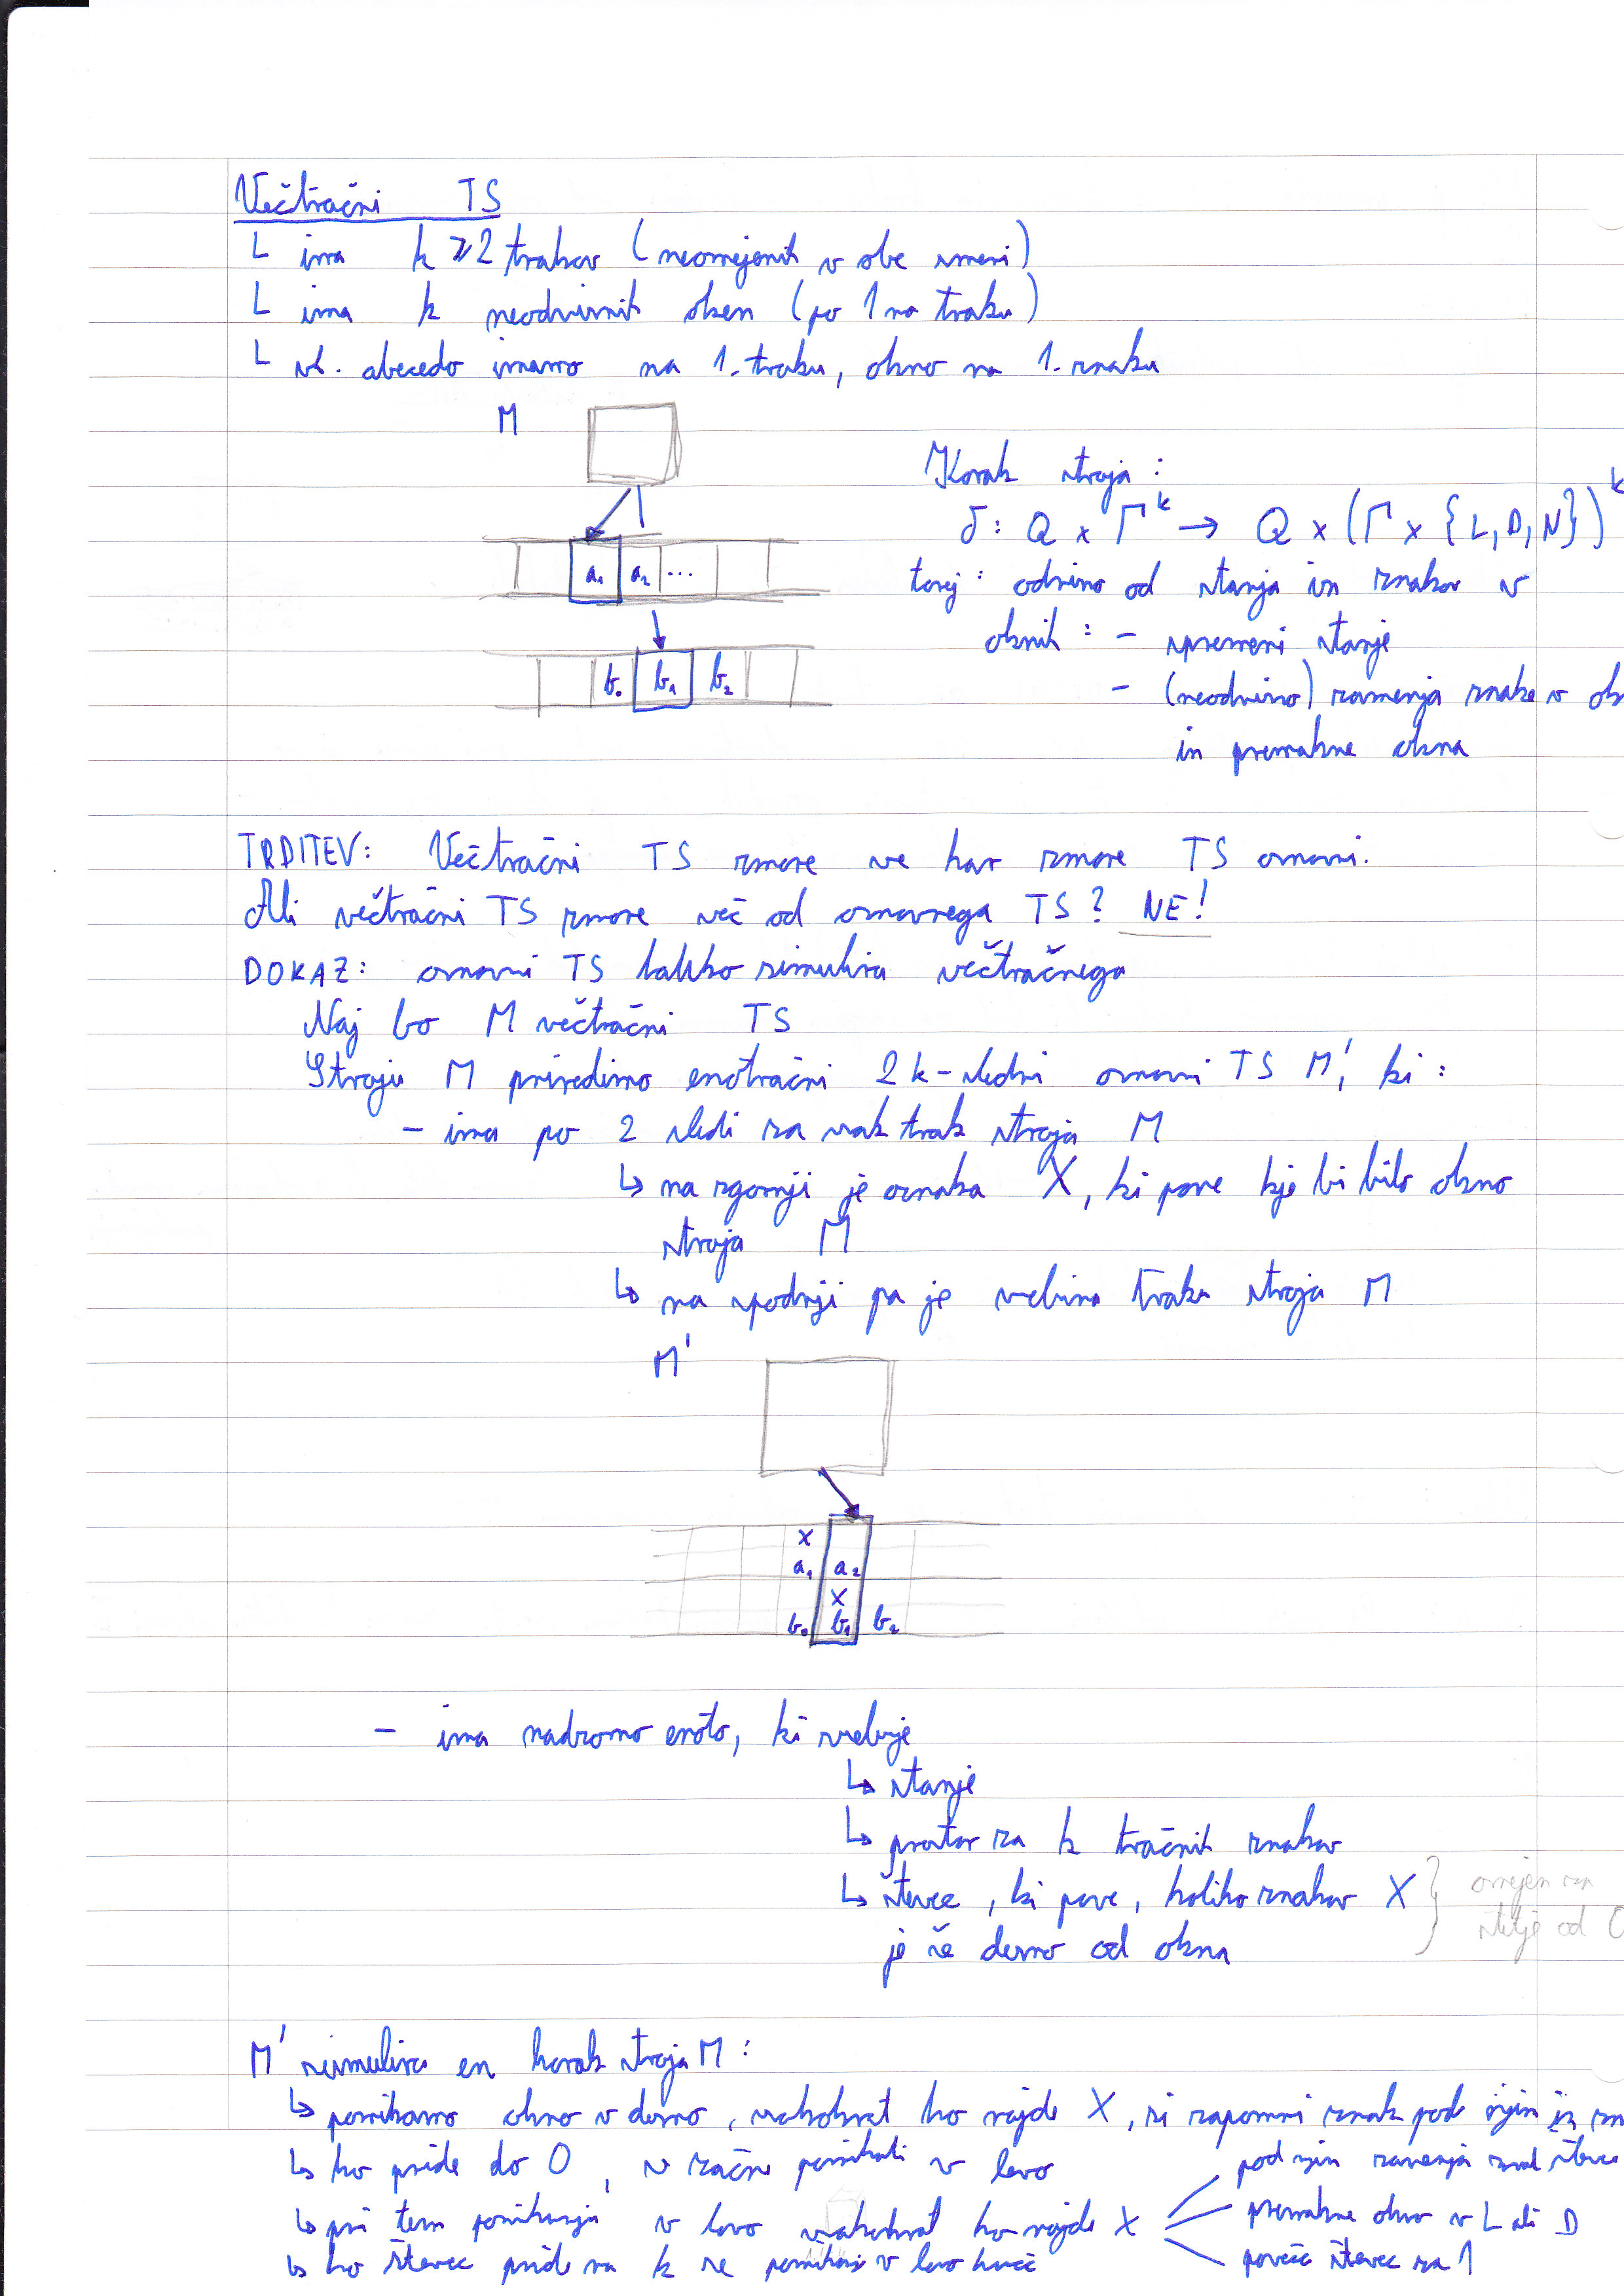 Večtračni TS
└ ima k ≥ 2 trakov (neomejenih v obe smeri)
└ ima k neodvisnih oken (po 1 na traku)
└ vh. abecedo imamo na 1. traku, okno na 1. znaku
M
a₁ a₂ ...
b₀ b₁ b₂
Korak stroja :
δ: Q × Γᵏ → Q × (Γ × {L, D, N})ᵏ
torej : odvisno od stanja in znakov v
oknih : - spremeni stanje
- (neodvisno) zamenja znake v
in premakne okna
TRDITEV: Večtračni TS zmore vse kar zmore TS osnovni.
Ali večtračni TS zmore več od osnovnega TS? NE!
DOKAZ: osnovni TS lahko simulira večtračnega
Naj bo M večtračni TS
Stroju M priredimo enotračni 2k-sledni osnovni TS M', ki :
- ima po 2 sledi za vsak trak stroja M
↳ na zgornji je oznaka X, ki pove kje bi bilo okno
stroja M
↳ na spodnji pa je vsebina traku stroja M
M'
X
a₁ a₂
X
b₀ b₁ b₂
- ima nadzorno enoto, ki vsebuje
↳ stanje
↳ prostor za k tračnih znakov
↳ števec, ki pove, koliko znakov X
je še desno od okna
} omejen za
štetje od 0
M' simulira en korak stroja M :
↳ pomikamo okno v desno, vsakokrat ko najde X, si zapomni znak pod njim in
↳ ko pride do 0, se začne pomikati v levo
↳ pri tem pomikanju v levo vsakokrat ko najde X
pod njim zamenja znak
premakne okno v L ali D
poveča števec za 1
↳ ko števec pride na k se pomikanje v levo konča